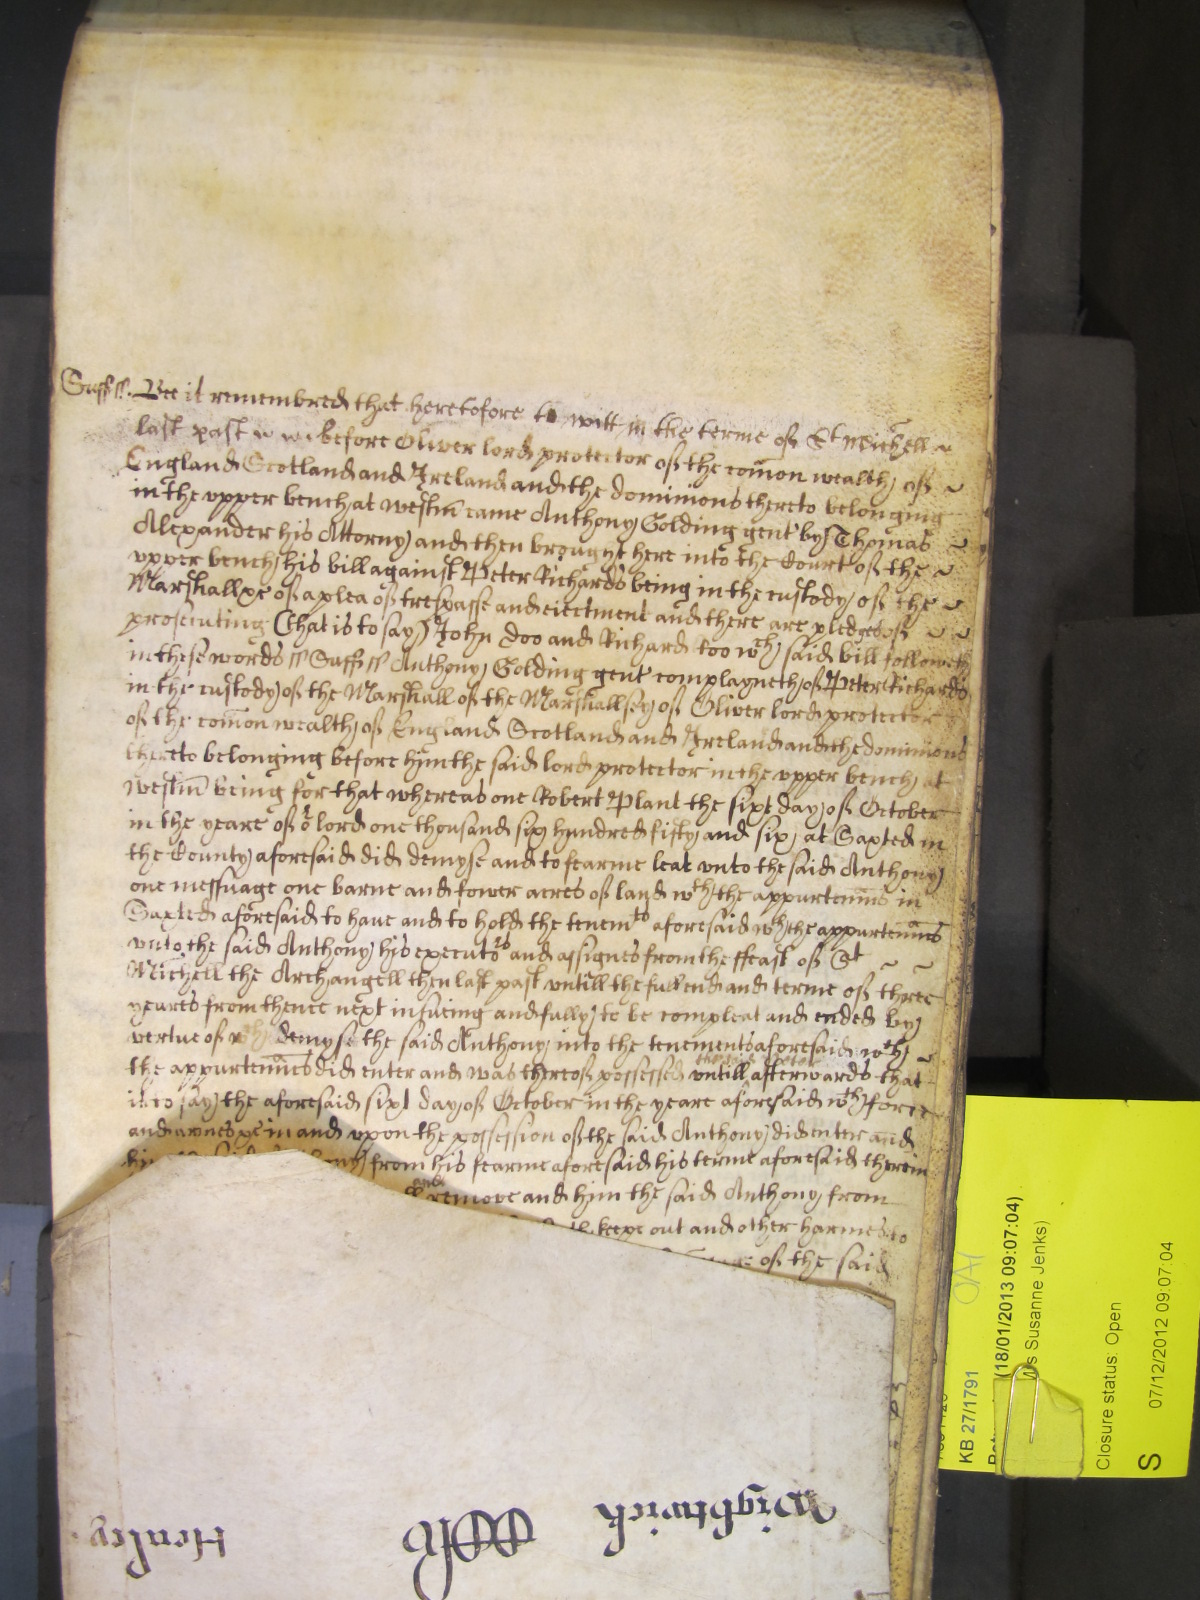 Suff ss. Bee it remembred that heretofore to witt in the terme of St Michell
last past before Oliver lord protector of the comon wealth of
England Scotland and Ireland and the dominions thereto belonging
in the vpper bench at Westm came Anthony Golding gent by Thomas
Alexander his Attorny and then brought here into the Court of the
vpper bench his bill against Peter Richards being in the custody of the
Marshall &c of a plea of trespasse and eiectment and there are pledges of
prosecuting (that is to say) John Doo and Richard roo wch said bill followeth
in these words ss Suff ss Anthony Golding gent complayneth of Peter Richards
in the custody of the Marshall of the Marshallsey of Oliver lord protector
of the comon wealth of England Scotland and Ireland and the dominions
thereto belonging before him the said lord protector in the vpper bench at
Westm being for that whereas one Robert Plant the sixt day of October
in the yeare of or lord one thousand six hundred fifty and six at Saxted in
the County aforesaid did demyse and to fearme leat vnto the said Anthony
one messuage one barne and fower acres of land wth the appurtenncs in
Saxted aforesaid to haue and to hold the tenemts aforesaid wth the appurtenncs
vnto the said Anthony his executors and assignes from the ffeast of St
Michell the Archangell then last past vntill the full end and terme of three
yeares from thence next insueing and fully to be compleat and ended by
vertue of wch demyse the said Anthony into the tenements aforesaid wth
the appurtenncs did enter and was thereof possessed vntill afterwards that
is to say the aforesaid sixt day of October in the yeare aforesaid wth force
and armes &c in and vpon the possession of the said Anthony did enter and
from his fearme aforesaid his terme aforesaid therein
remove and him the said Anthony from
keepe out and other harmes to
of the said
Wightwick
Henley
KB 27/1791
(18/01/2013 09:07:04)
Susanne Jenks)
Closure status: Open
07/12/2012 09:07:04
S